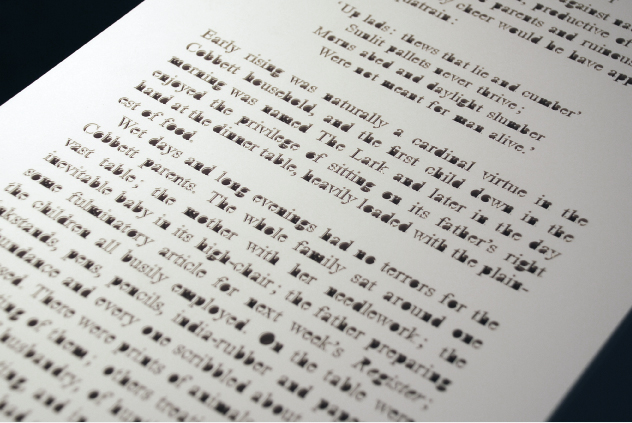 against
productive of
parents and ruinous
cheer would be have app
'Up lads: thews that lie and cumber'
Sunlit pallets never thrive;
Morns abed and daylight slumber
Were not meant for man alive.'
Early rising was naturally a cardinal virtue in the
Cobbett household, and the first child down in the
morning was named The Lark and later in the day
enjoyed the privilege of sitting on its father's right
hand at the dinner table, heavily loaded with the plain-
est of food.
Wet days and long evenings had no terrors for the
Cobbett parents. The whole family sat around one
vast table; the mother with her needlework; the
inevitable baby in its high-chair; the father preparing
some fulminatory article for next week's Register;
the children all busily employed. On the table were
pens, pencils, india-rubber and
and every one scribbled about
There were prints of animals
of them: others
husbandry, of
and